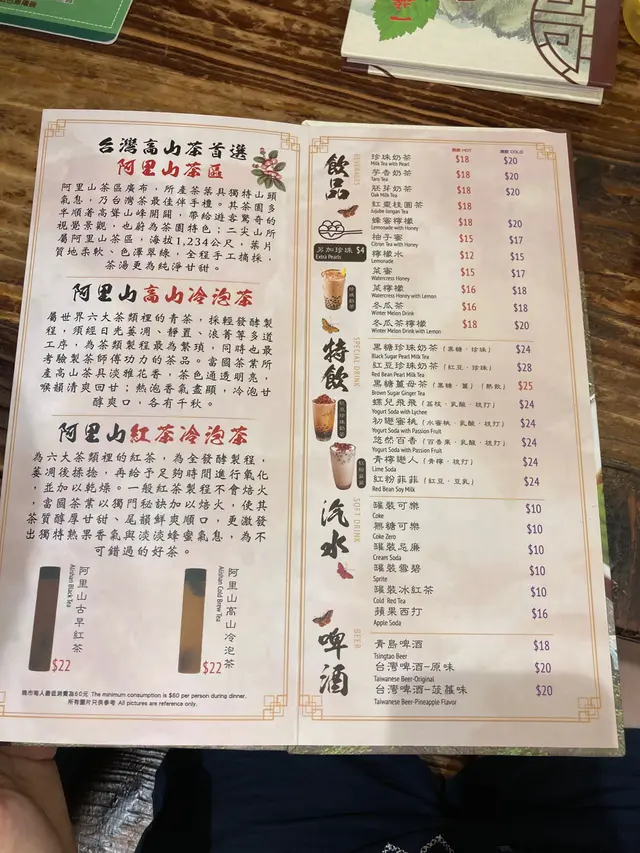 台灣高山茶首選
阿里山茶區
阿里山茶區廣布，所產茶葉具獨特山頭
氣息，乃台灣茶最佳伴手禮。其茶園多
半順著高聳山峰開闢，帶給遊客驚奇的
視覺景觀，也蔚為茶園特色；二尖山所
屬阿里山茶區，海拔1,234公尺，葉片
質地柔軟、色澤翠綠，全程手工摘採，
茶湯更為純淨甘甜。
阿里山高山冷泡茶
屬世界六大茶類裡的青茶，採輕發酵製
程，須經日光萎凋、靜置、浪菁等多道
工序，為茶類製程最為繁瑣，同時也最
考驗製茶師傅功力的茶品。當園茶業所
產高山茶具淡雅花香，茶色通透明亮，
喉韻清爽回甘；熱泡香氣盡顯，冷泡甘
醇爽口，各有千秋。
阿里山紅茶冷泡茶
為六大茶類裡的紅茶，為全發酵製程，
萎凋後揉捻，再給予足夠時間進行氧化
，並加以乾燥。一般紅茶製程不會焙火
，當園茶業以獨門秘訣加以焙火，使其
茶質醇厚甘甜、尾韻鮮爽順口，更激發
出獨特熟果香氣與淡淡蜂蜜氣息，為不
可錯過的好茶。
阿里山古早紅茶
Alishan Black Tea
$22
阿里山高山冷泡茶
Alishan Cold Brew Tea
$22
晚市每人最低消費為60元 The minimum consumption is $60 per person during dinner.
所有圖片只供參考 All pictures are reference only.
飲品
BEVERAGES
HOT
COLD
珍珠奶茶 $18 $20
Milk Tea with Pearl
芋香奶茶 $18 $20
Taro Tea
胚芽奶茶 $18 $20
Oak Milk Tea
紅棗桂圓茶 $18
Jujube longan Tea
蜂蜜檸檬 $18 $20
Lemonade with Honey
柚子蜜 $15 $17
Citron Tea with Honey
檸水 $12 $15
Lemonade
菜蜜 $15 $17
Watercress Honey
菜檸檬 $16 $18
Watercress Honey with Lemon
冬瓜茶 $16 $18
Winter Melon Drink
冬瓜茶檸檬 $18 $20
Winter Melon Drink with Lemon
另加珍珠 $4
Extra Pearls
特飲
SPECIAL DRINK
黑糖珍珠奶茶 (黑糖．珍珠) $24
Black Sugar Pearl Milk Tea
紅豆珍珠奶茶 (紅豆．珍珠) $28
Red Bean Pearl Milk Tea
黑糖薑母茶 (黑糖．薑) (熱飲) $25
Brown Sugar Ginger Tea
蝶兒飛飛 (荔枝．乳酸．梳打) $24
Yogurt Soda with Lychee
初戀蜜桃 (水蜜桃．乳酸．梳打) $24
Yogurt Soda with Passion Fruit
悠然百香 (百香果．乳酸．梳打) $24
Yogurt Soda with Passion Fruit
青檸戀人 (青檸．梳打) $24
Lime Soda
紅粉菲菲 (紅豆．豆乳) $24
Red Bean Soy Milk
汽水
SOFT DRINK
罐裝可樂 $10
Coke
無糖可樂 $10
Coke Zero
罐裝忌廉 $10
Cream Soda
罐裝雪碧 $10
Sprite
罐裝冰紅茶 $10
Cold Red Tea
蘋果西打 $16
Apple Soda
啤酒
BEER
青島啤酒 $18
Tsingtao Beer
台灣啤酒-原味 $20
Taiwanese Beer-Original
台灣啤酒-菠蘿味 $20
Taiwanese Beer-Pineapple Flavor